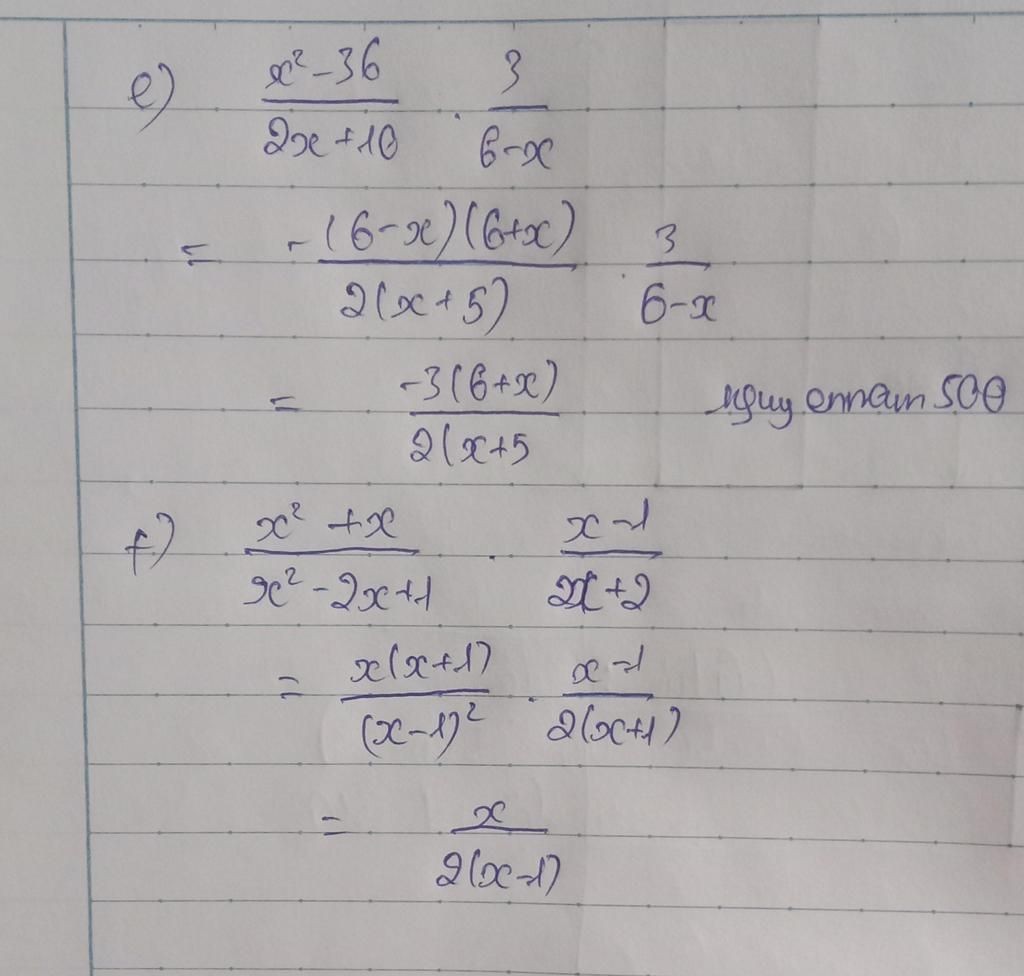 e) (x² - 36)/(2x + 10) . 3/(6 - x)
= -(6 - x)(6 + x)/2(x + 5) . 3/(6 - x)
= -3(6 + x)/2(x + 5 500
f) (x² + x)/(x² - 2x + 1) . (x - 1)/(2x + 2)
= x(x + 1)/(x - 1)² . (x - 1)/2(x + 1)
= x/2(x - 1)